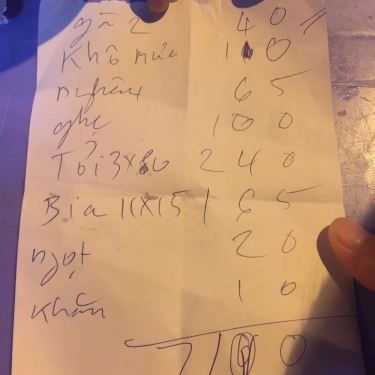 gà 2 40
Khô mực 110
nghêu 65
ghẹ 100
Tỏi 3x80 240
Bia 11x15 165
ngọt 20
Khăn 10